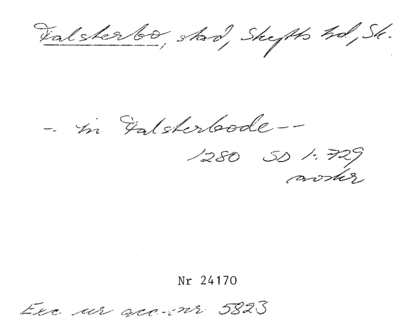 Falsterbo, stad, Skytts hd, Sk.
-- in Falsterbode --
1280 SD 1:729
avskr
Nr 24170
Exc ur acc.-nr 5823